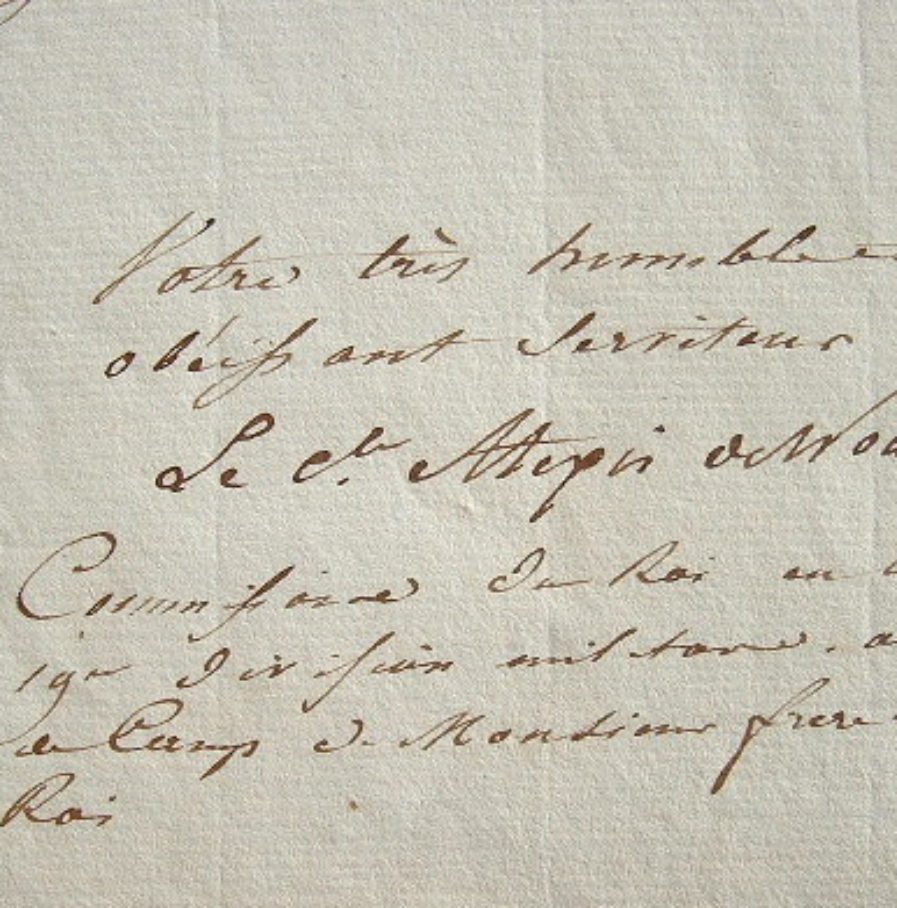 Votre très humble e
obéissant Serviteur
Le Cte Alexis de Noa
Commissaire du Roi en l
19e division militaire. a
de Camp de Monsieur frere
Roi